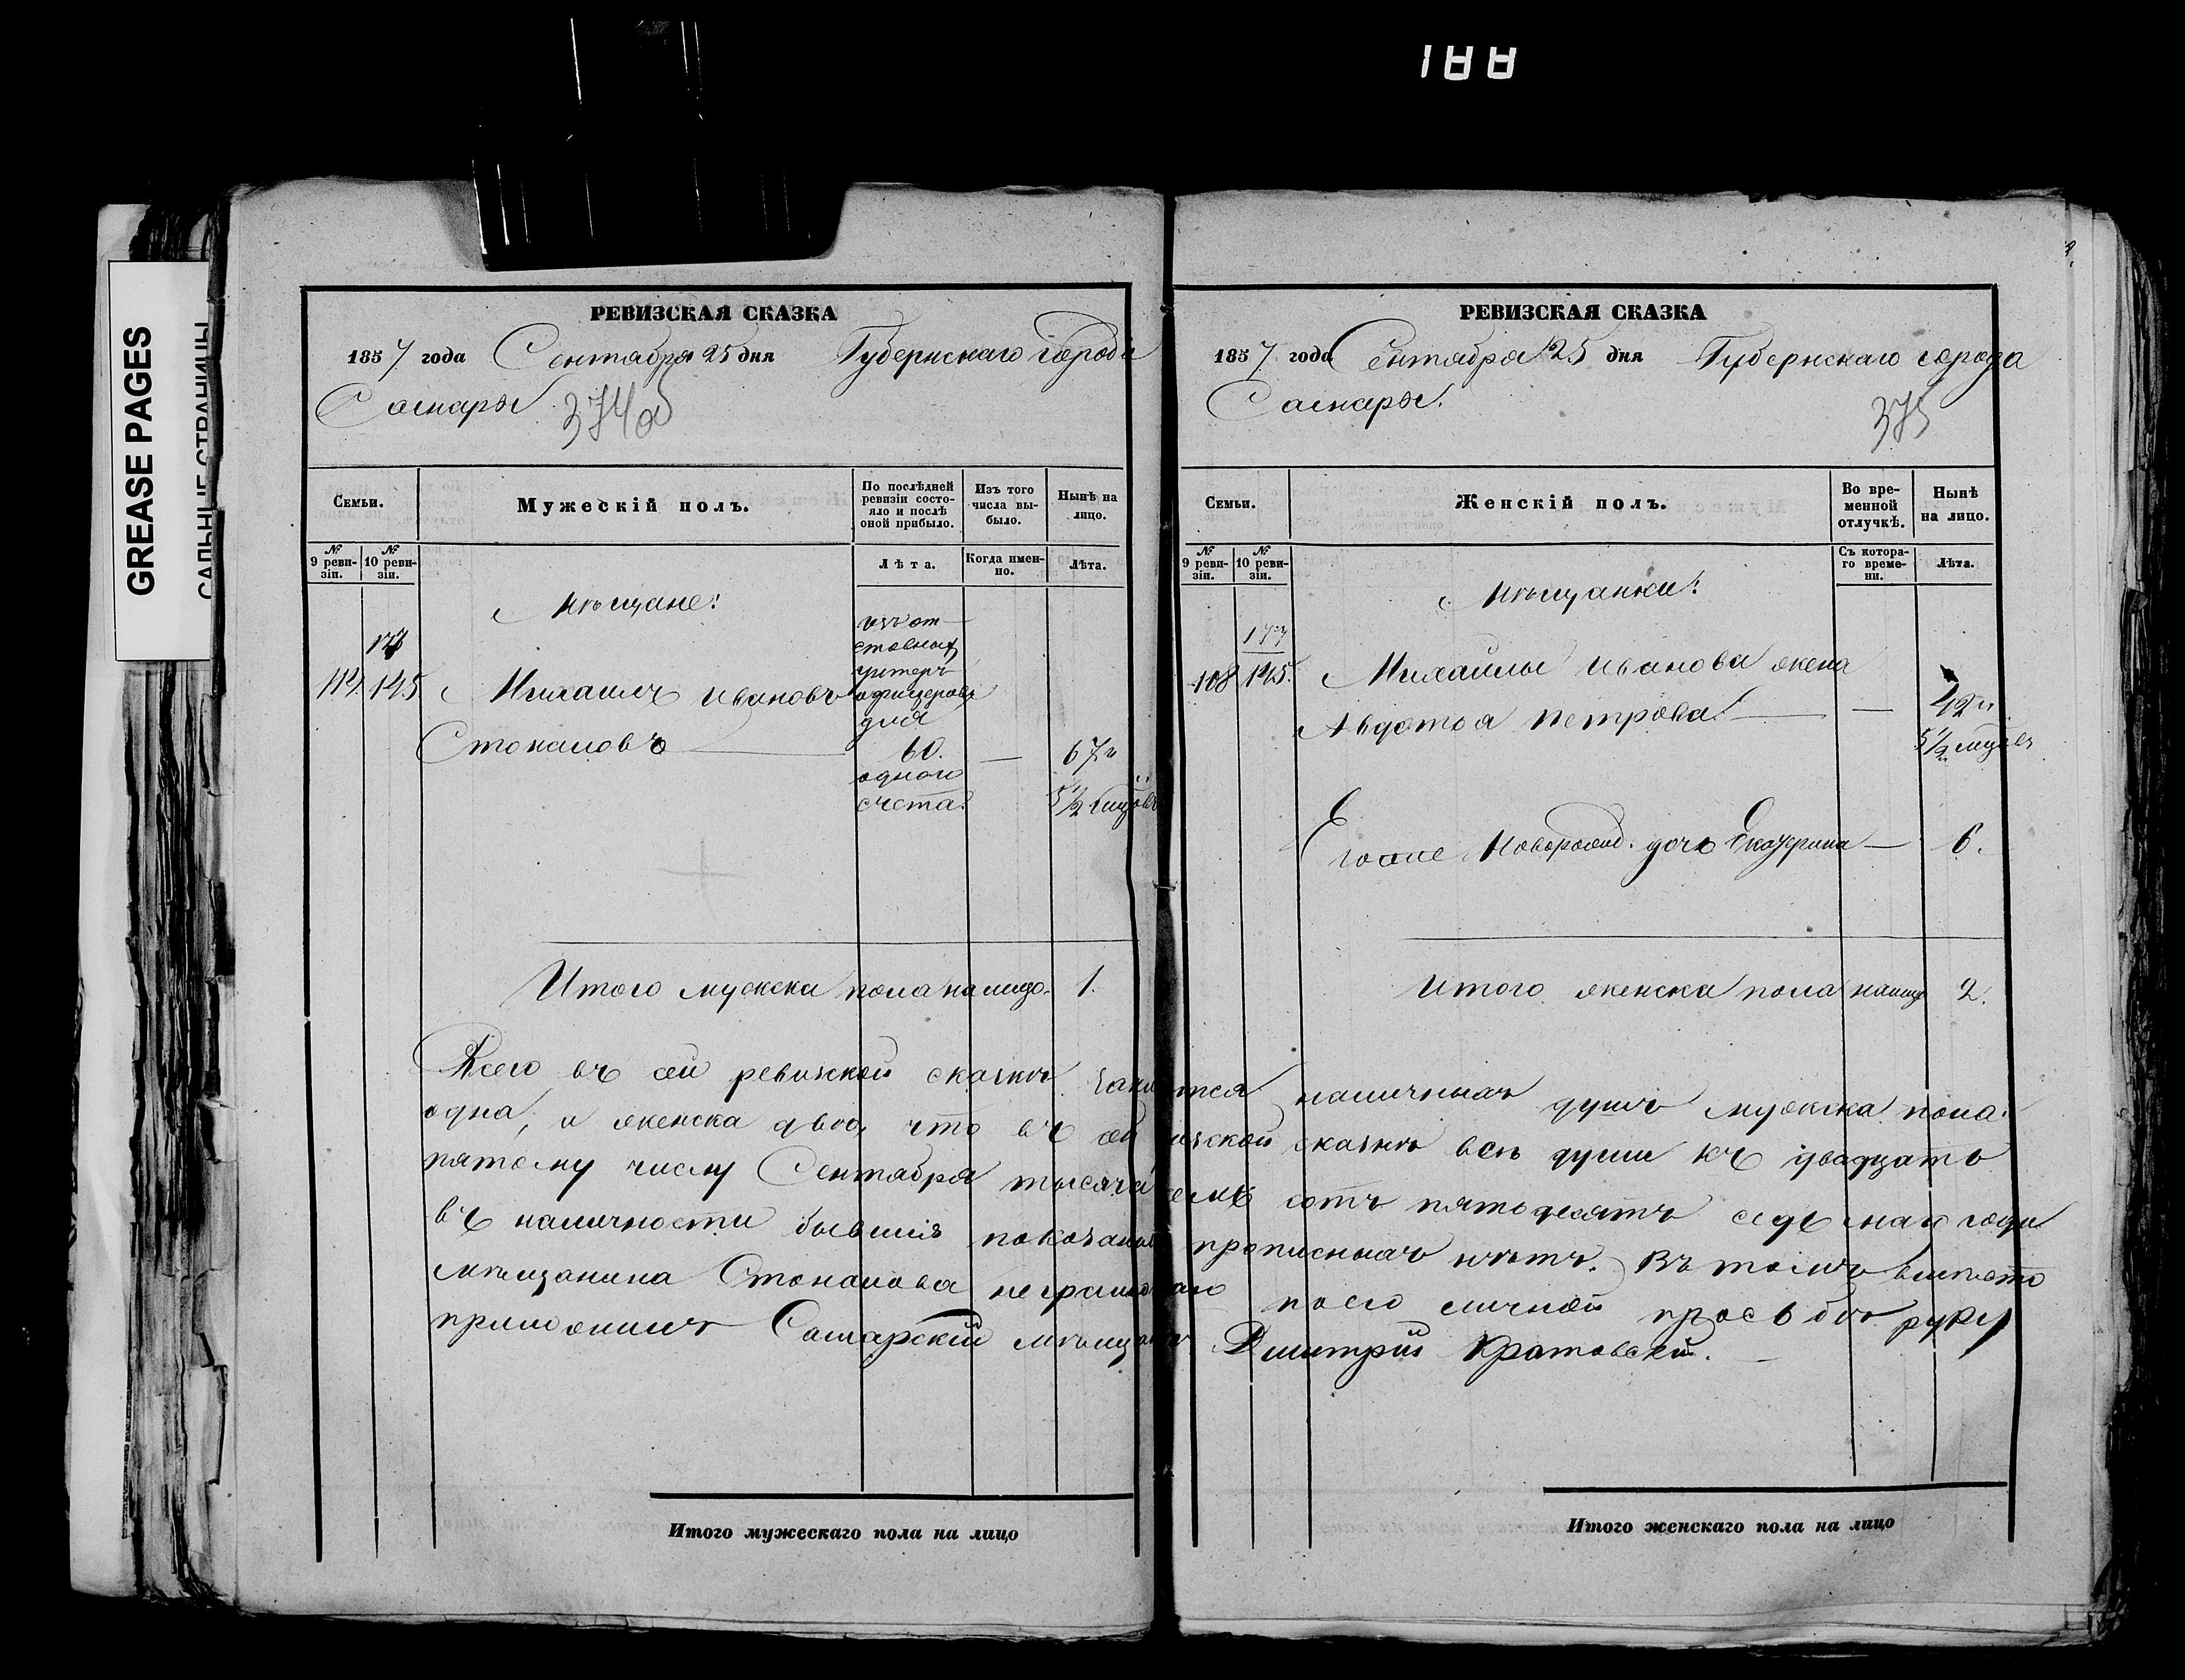 188
GREASE PAGES
САЛЬНЫЕ СТРАНИЦЫ
РЕВИЗСКАЯ СКАЗКА
1857 года Сентября 25 дня Губернскаго города
Самары.
374об
Семьи.
Мужескій полъ.
По послѣдней ревизіи состояло и послѣ оной прибыло.
Изъ того числа выбыло.
Нынѣ на лицо.
№ 9 ревизіи.
№ 10 ревизіи.
Лѣта.
Когда именно.
Лѣта.
Мѣщане:
изъ от
ставных
унтеръ
офицеровъ
для
60.
одного
счета.
177
114. 145
Михаилъ Ивановъ
Стокаловъ — — 67 и
5 1/2 мцовъ
Итого мужска пола на лицо. 1.
РЕВИЗСКАЯ СКАЗКА
1857 года Сентября 25 дня Губернскаго города
Самары.
375
Семьи.
Женскій полъ.
Во временной отлучкѣ.
Нынѣ на лицо.
№ 9 ревизіи.
№ 10 ревизіи.
Съ котораго времени.
Лѣта.
Мѣщанки:
177
108 145.
Михайлы Иванова жена
Авдотья Петрова. — — 42 и
5 1/2 мцовъ
Его же новорожд. дочь Екатерина — 6.
Итого женска пола на лицо 2.
Всего въ сей ревизской сказкѣ наличныхъ душъ мужска пола
одна, и женска двѣ, что въ сей сказкѣ всѣ души къ двадцать
пятому числу Сентября тысяча сотъ пятьдесятъ седьмаго года
въ наличности бывшія показаны прописныхъ нѣтъ. Въ томъ вмѣсто
мѣщанина Стокалова неграмотнаго по его личной прозьбѣ руку
приложилъ Самарскій мѣщанинъ Дмитрій Кратовскій.
Итого мужескаго пола на лицо
Итого женскаго пола на лицо